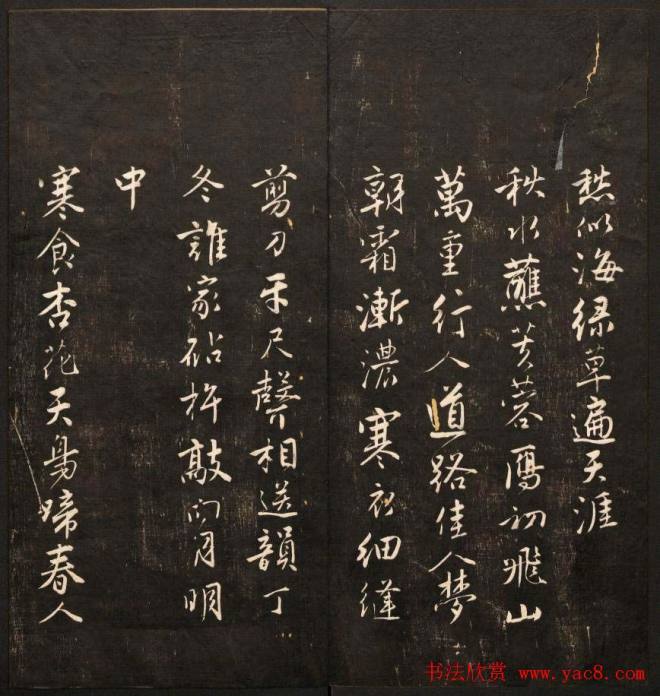 愁似海緑草遍天涯
秋水蘸芙蓉鴈初飛山
萬重行人道路佳人夢
朝霜漸濃寒衣細縫
剪刀牙尺聲相送韻丁
冬誰家砧杵敲向月明
中
寒食杏花天鳥啼春人
书法欣赏 www.yac8.com